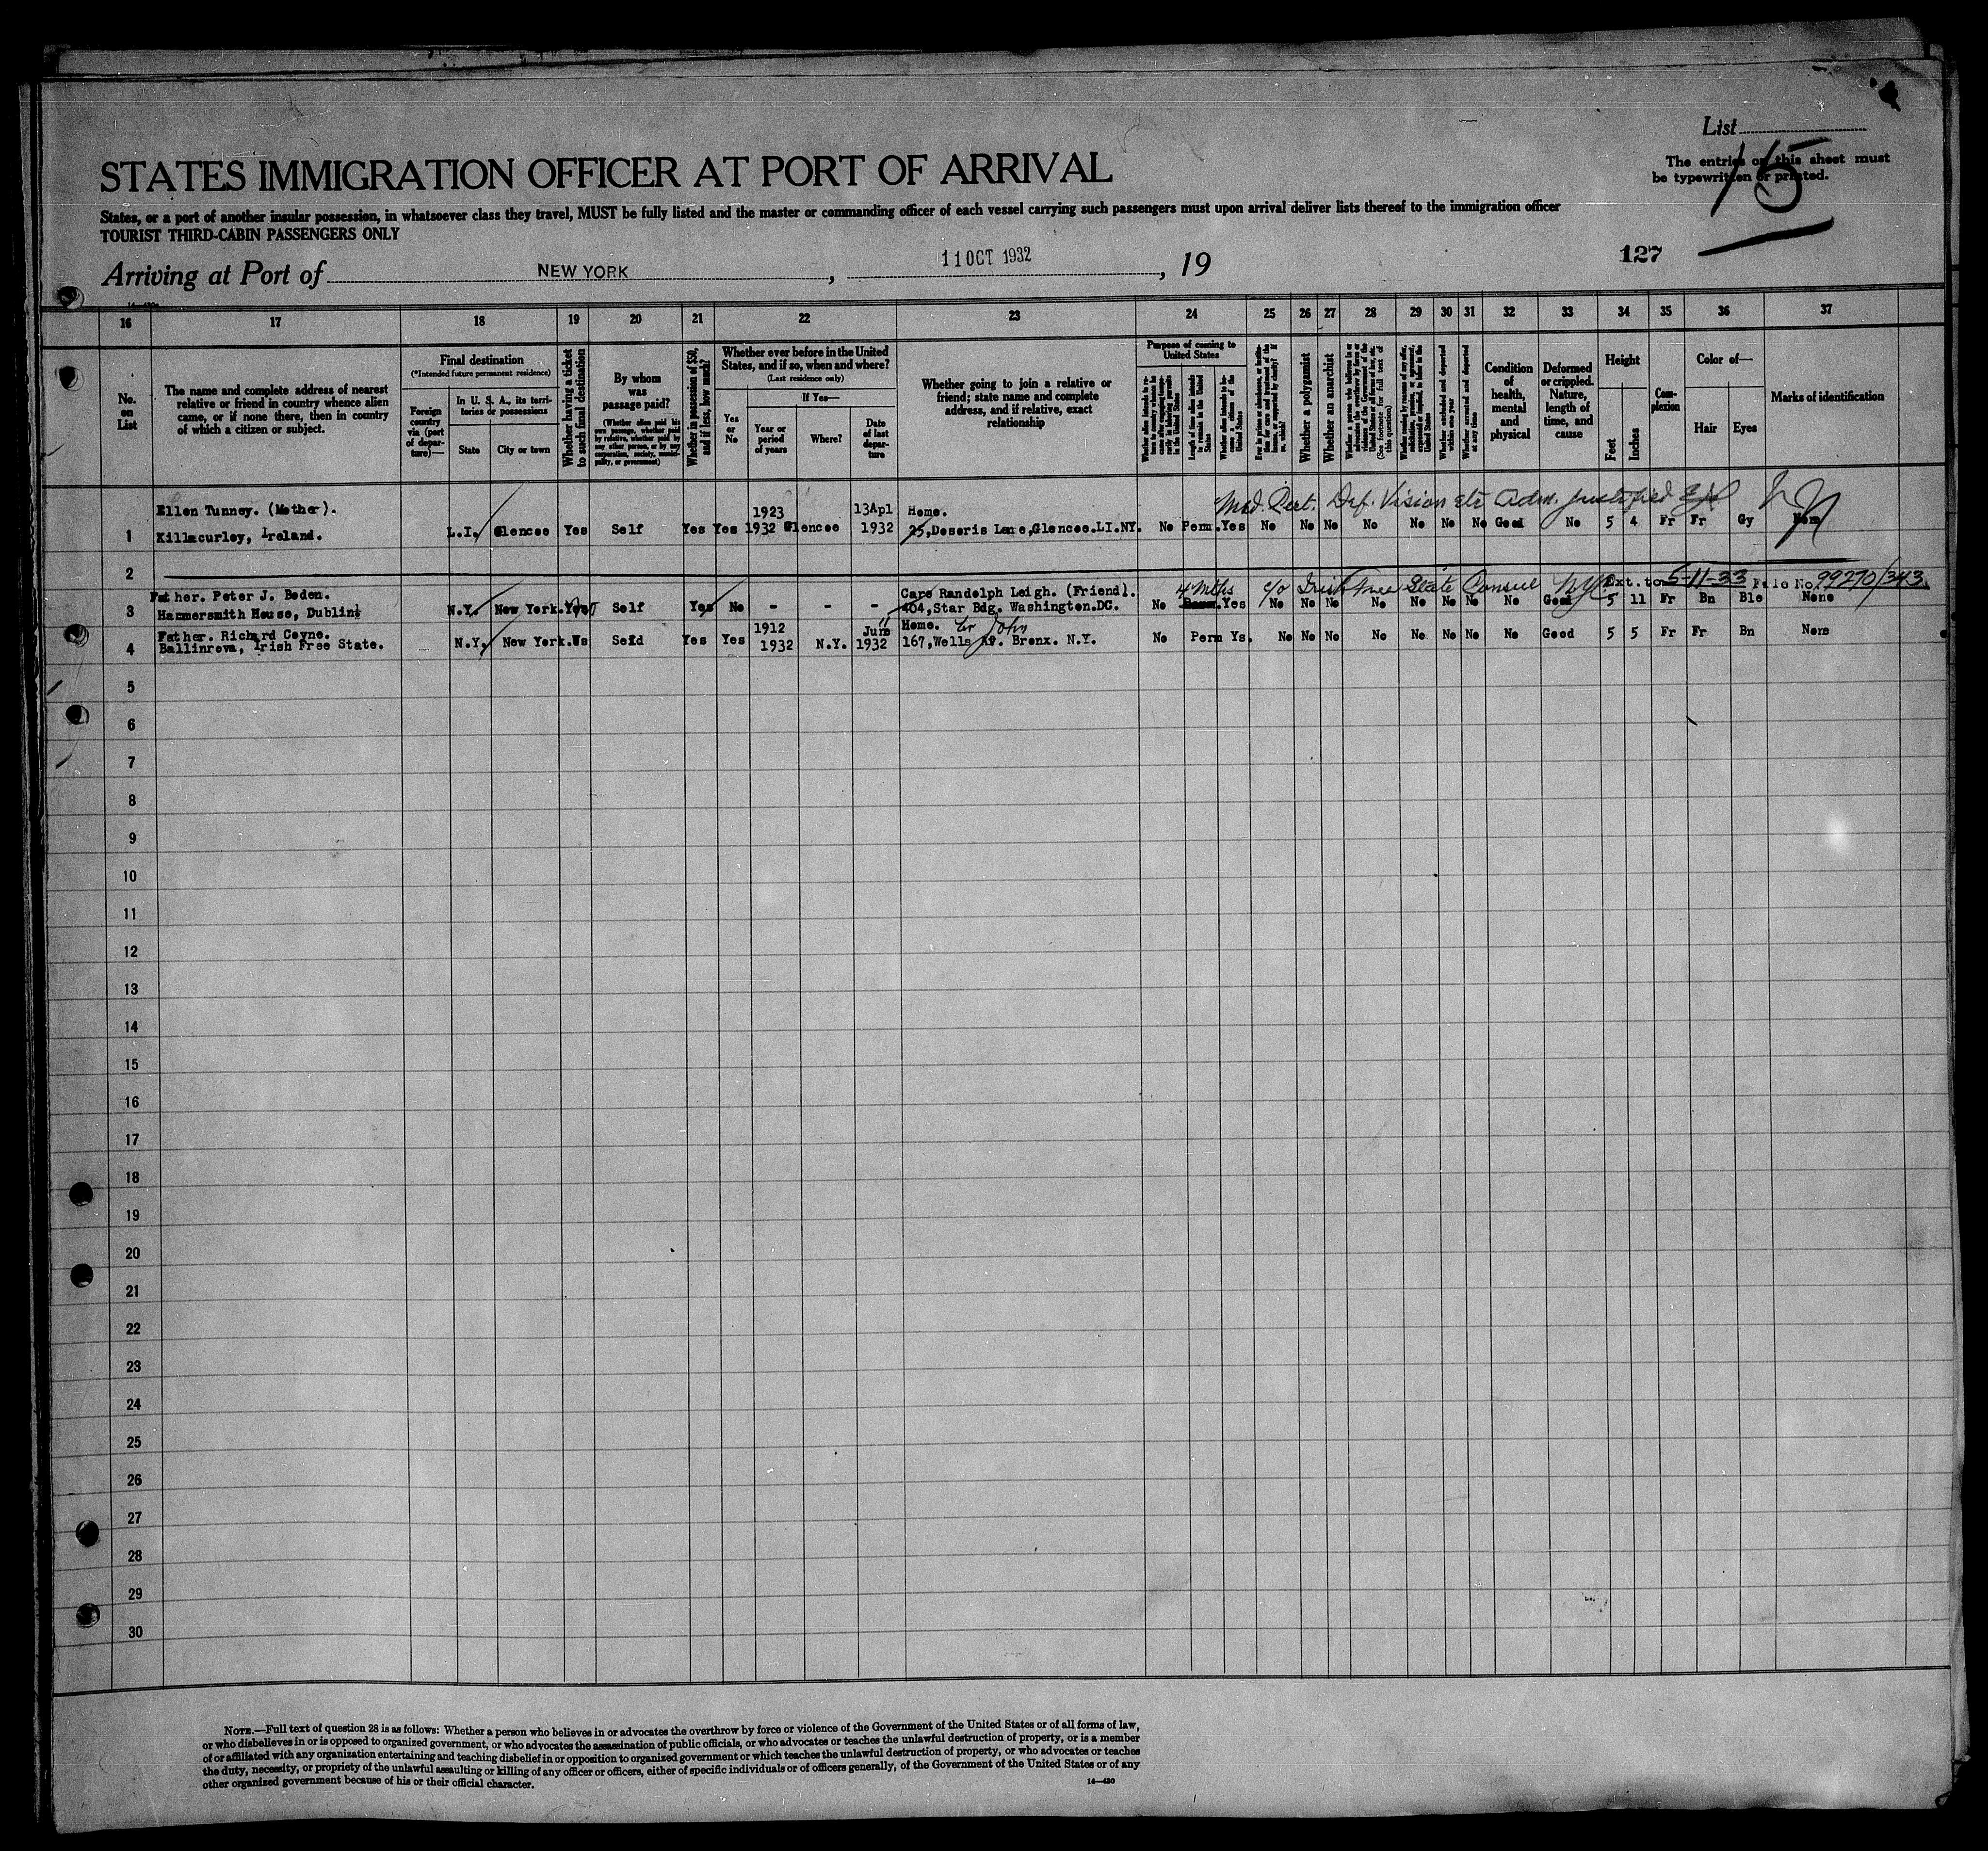 List
15
The entries on this sheet must
be typewritten or printed.
STATES IMMIGRATION OFFICER AT PORT OF ARRIVAL
States, or a port of another insular possession, in whatsoever class they travel, MUST be fully listed and the master or commanding officer of each vessel carrying such passengers must upon arrival deliver lists thereof to the immigration officer
TOURIST THIRD-CABIN PASSENGERS ONLY
127
Arriving at Port of NEW YORK, 11 OCT 1932, 19
16 17 18 19 20 21 22 23 24 25 26 27 28 29 30 31 32 33 34 35 36 37
No.
on
List
The name and complete address of nearest
relative or friend in country whence alien
came, or if none there, then in country
of which a citizen or subject.
Final destination
(*Intended future permanent residence)
Foreign
country
via (port
of depar-
ture)—
In U. S. A., its terri-
tories or possessions
State
City or town
Whether having a ticket
to such final destination
By whom
was
passage paid?
(Whether alien paid his
own passage, whether paid
by relative, whether paid by
any other person, or by any
corporation, society, munici-
pality, or government)
Whether in possession of $50,
and if less, how much?
Whether ever before in the United
States, and if so, when and where?
(Last residence only)
Yes
or
No
If Yes—
Year or
period
of years
Where?
Date
of last
depar-
ture
Whether going to join a relative or
friend; state name and complete
address, and if relative, exact
relationship
Purpose of coming to
United States
Length of time alien intends
to remain in the United
States
Whether alien intends to be-
come a citizen of the
United States
Whether a polygamist
Whether an anarchist
(See footnote for full text of
this question)
Whether arrested and deported
within one year
Whether arrested and deported
at any time
Condition
of
health,
mental
and
physical
Deformed
or crippled.
Nature,
length of
time, and
cause
Height
Feet
Inches
Com-
plexion
Color of—
Hair
Eyes
Marks of identification
Med. Cert. Def. Vision etc adm. justified
1 Ellen Tunney. (Mother).
Killacurley, Ireland.
L.I. Glencoe Yes Self Yes Yes 1923 1932 Glencoe 13Apl 1932
Home.
25,Desoris Lane,Glencoe.LI.NY.
No Perm.Yes No No No No No No No Good No 5 4 Fr Fr Gy
2
4 Mths c/o Irish Free State Consul NYC Ext. to 5-11-33 File No 99270/343
3 Father. Peter J. Boden.
Hammersmith House, Dublin
N.Y. New York. Self Yes No - - -
Care Randolph Leigh. (Friend).
404,Star Bdg. Washington.DC.
No Yes No No No No No No No No Good 5 11 Fr Bn Ble None
4 Father. Richard Coyne.
Ballinrova, Irish Free State.
N.Y. New York. Yes Yes 1912 1932 N.Y. June 1932
Home. Br John
167,Wells Av. Bronx. N.Y.
No Perm Ys. No No No No No No No No Good 5 5 Fr Fr Bn
5
6
7
8
9
10
11
12
13
14
15
16
17
18
19
20
21
22
23
24
25
26
27
28
29
30
NOTE.—Full text of question 28 is as follows: Whether a person who believes in or advocates the overthrow by force or violence of the Government of the United States or of all forms of law,
or who disbelieves in or is opposed to organized government, or who advocates the assassination of public officials, or who advocates or teaches the unlawful destruction of property, or is a member
of or affiliated with any organization entertaining and teaching disbelief in or opposition to organized government or which teaches the unlawful destruction of property, or who advocates or teaches
the duty, necessity, or propriety of the unlawful assaulting or killing of any officer or officers, either of specific individuals or of officers generally, of the Government of the United States or of any
other organized government because of his or their official character.
14—430